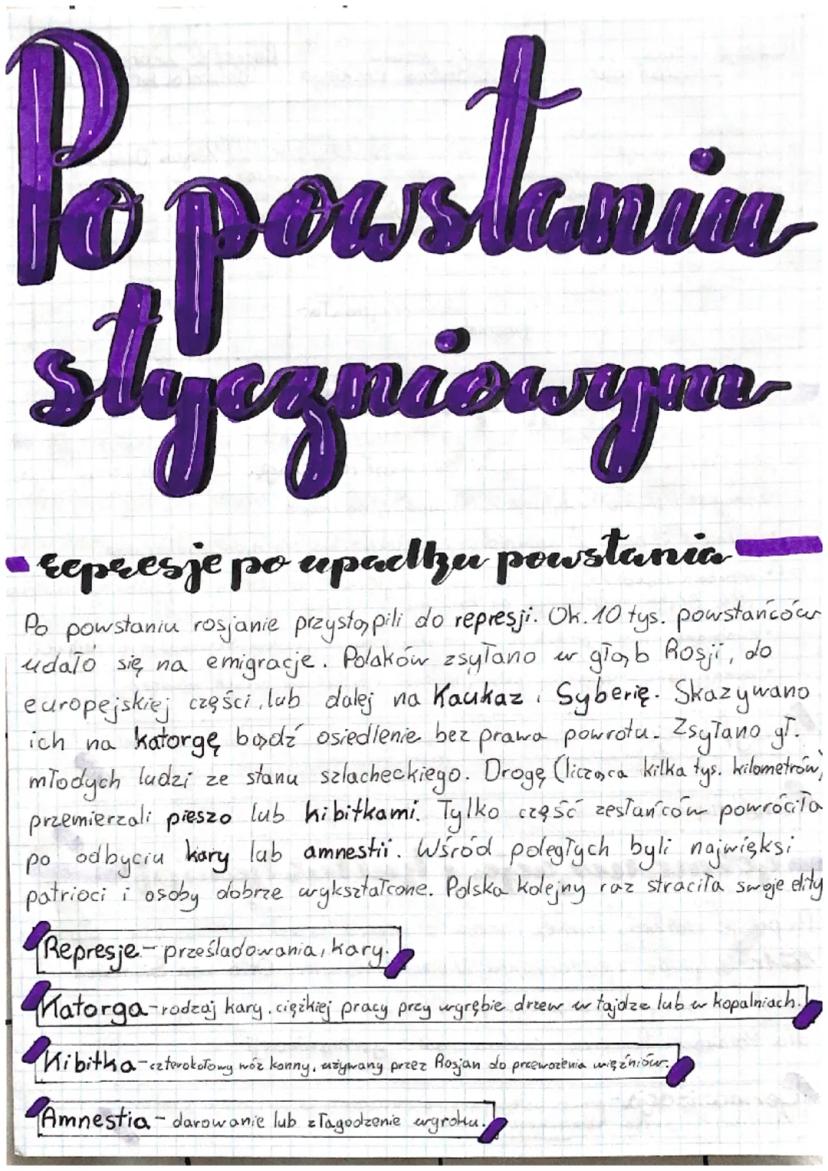 Po powstaniu
styczniowym
represje po upadku powstania
Po powstaniu rosjanie przystąpili do represji. Ok. 10 tys. powstańców
udało się na emigracje. Polaków zsyłano w głąb Rosji, do
europejskiej części, lub dalej na Kaukaz i Syberię. Skazywano
ich na katorgę bądź osiedlenie bez prawa powrotu. Zsyłano gł.
młodych ludzi ze stanu szlacheckiego. Drogę (licząca kilka tys. kilometrów)
przemierzali pieszo lub kibitkami. Tylko część zesłańców powróciła
po odbyciu kary lub amnestii. Wśród poległych byli najwięksi
patrioci i osoby dobrze wykształcone. Polska kolejny raz straciła swoje elity
Represje - prześladowania, kary.
Katorga - rodzaj kary, ciężkiej pracy przy wyrębie drzew w tajdze lub w kopalniach.
Kibitka - czterokołowy wóz konny, używany przez Rosjan do przewożenia więźniów.
Amnestia - darowanie lub złagodzenie wyroku.